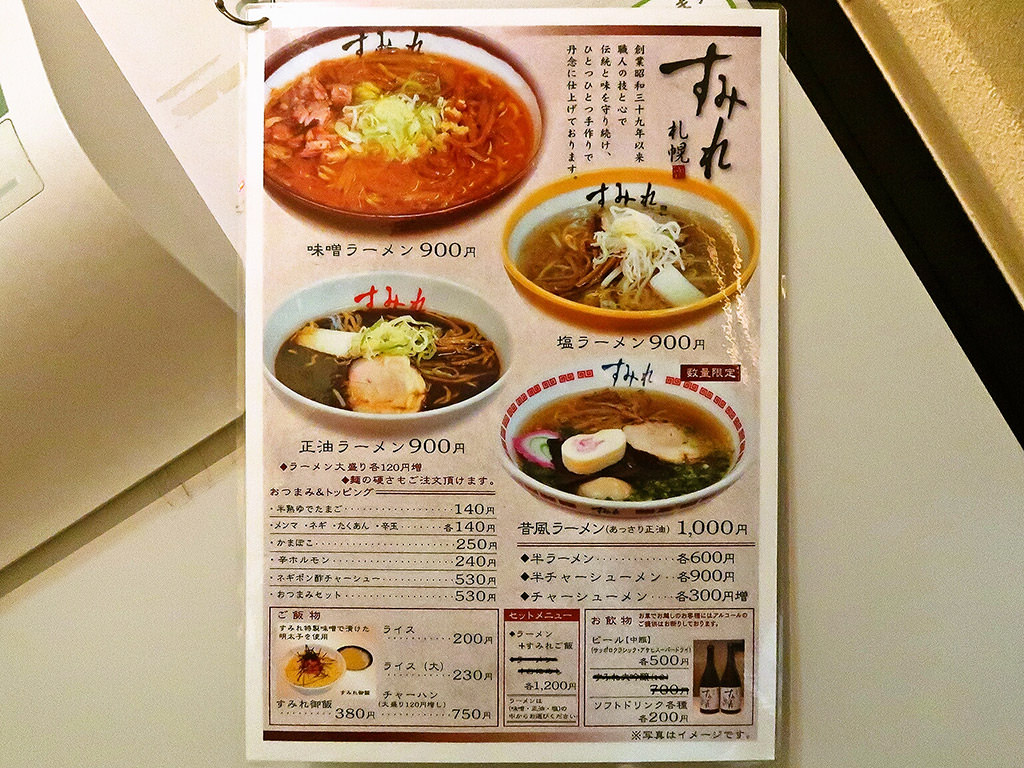 すみれ
札幌
創業昭和三十九年以来
職人の技と心で
伝統と味を守り続け、
ひとつひとつ手作りで
丹念に仕上げております。
すみれ
味噌ラーメン900円
すみれ
塩ラーメン900円
すみれ
正油ラーメン900円
すみれ
数量限定
昔風ラーメン(あっさり正油) 1,000円
◆ラーメン大盛り各120円増
◆麺の硬さもご注文頂けます。
おつまみ&トッピング
・半熟ゆでたまご 140円
・メンマ ・ネギ ・たくあん ・辛玉 各140円
・かまぼこ 250円
・辛ホルモン 240円
・ネギポン酢チャーシュー 530円
・おつまみセット 530円
◆半ラーメン 各600円
◆半チャーシューメン 各900円
◆チャーシューメン 各300円増
ご飯物
すみれ特製味噌で漬けた
明太子を使用
すみれ御飯
すみれ御飯 380円
ライス 200円
ライス(大) 230円
チャーハン
(大盛り120円増し) 750円
セットメニュー
◆ラーメン
+すみれご飯
各1,200円
ラーメンは
(味噌・正油・塩)の
中からお選びください
お飲物
お車でお越しのお客様にはアルコールの
ご提供はお断りしております。
ビール【中瓶】
(サッポロクラシック・アサヒスーパードライ)
各500円
700円
ソフトドリンク各種
各200円
※写真はイメージです。